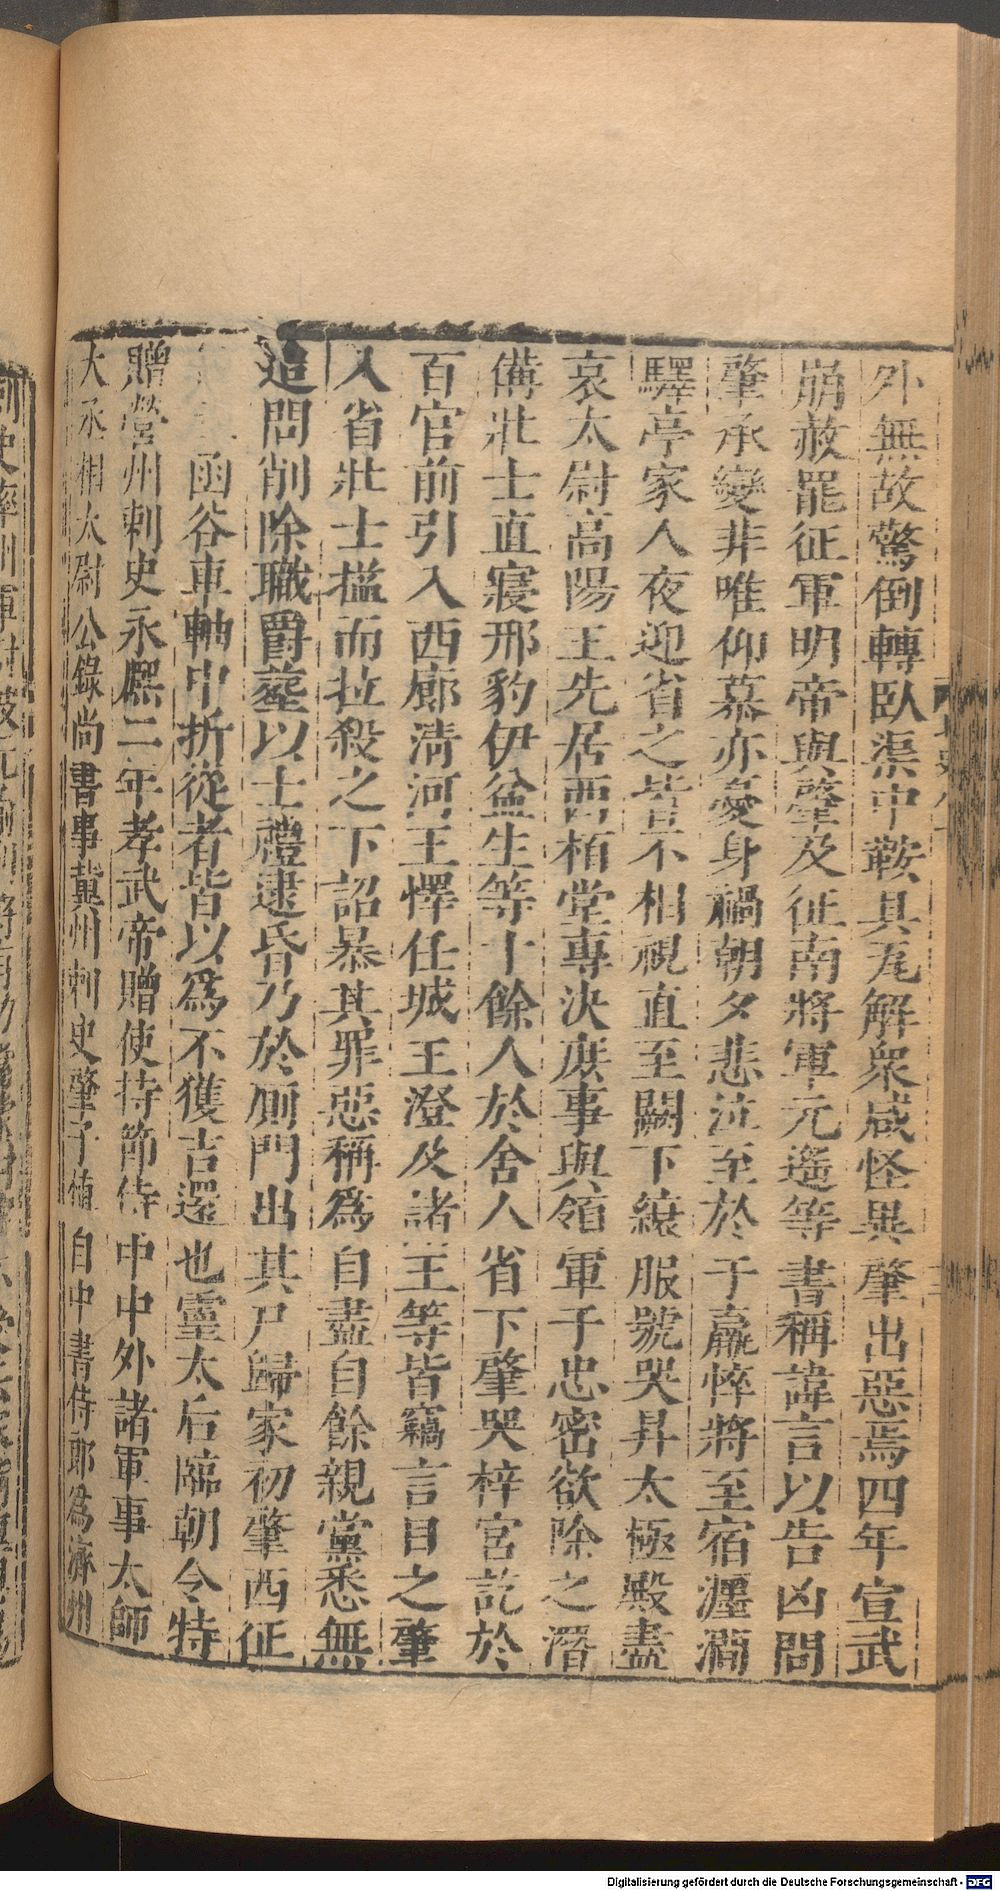 外無故驚倒轉臥渠中鞍具瓦解衆咸怪異肇出惡焉四年宣武
崩赦罷征軍明帝與肇及征南將軍元遙等書稱諱言以告凶問
肇承變非唯仰慕亦憂身禍朝夕悲泣至於于羸悴將至宿瀍澗
驛亭家人夜迎省之皆不相視直至闕下縗服號哭昇太極殿盡
哀太尉高陽王先居西栢堂專決庶事與領軍于忠密欲除之潛
備壯士直寢邢豹伊盆生等十餘人於舍人省下肇哭梓宮訖於
百官前引入西廊清河王懌任城王澄及諸王等皆竊言目之肇
入省壯士搤而拉殺之下詔暴其罪惡稱爲自盡自餘親黨悉無
追問削除職爵葬以士禮逮昏乃於廁門出其尸歸家初肇西征
函谷車軸中折從者皆以爲不獲吉還也靈太后臨朝令特
贈營州刺史永熙二年孝武帝贈使持節侍中中外諸軍事太師
大丞相太尉公錄尚書事冀州刺史肇子植自中書侍郎爲濟州
Digitalisierung gefördert durch die Deutsche Forschungsgemeinschaft - DFG